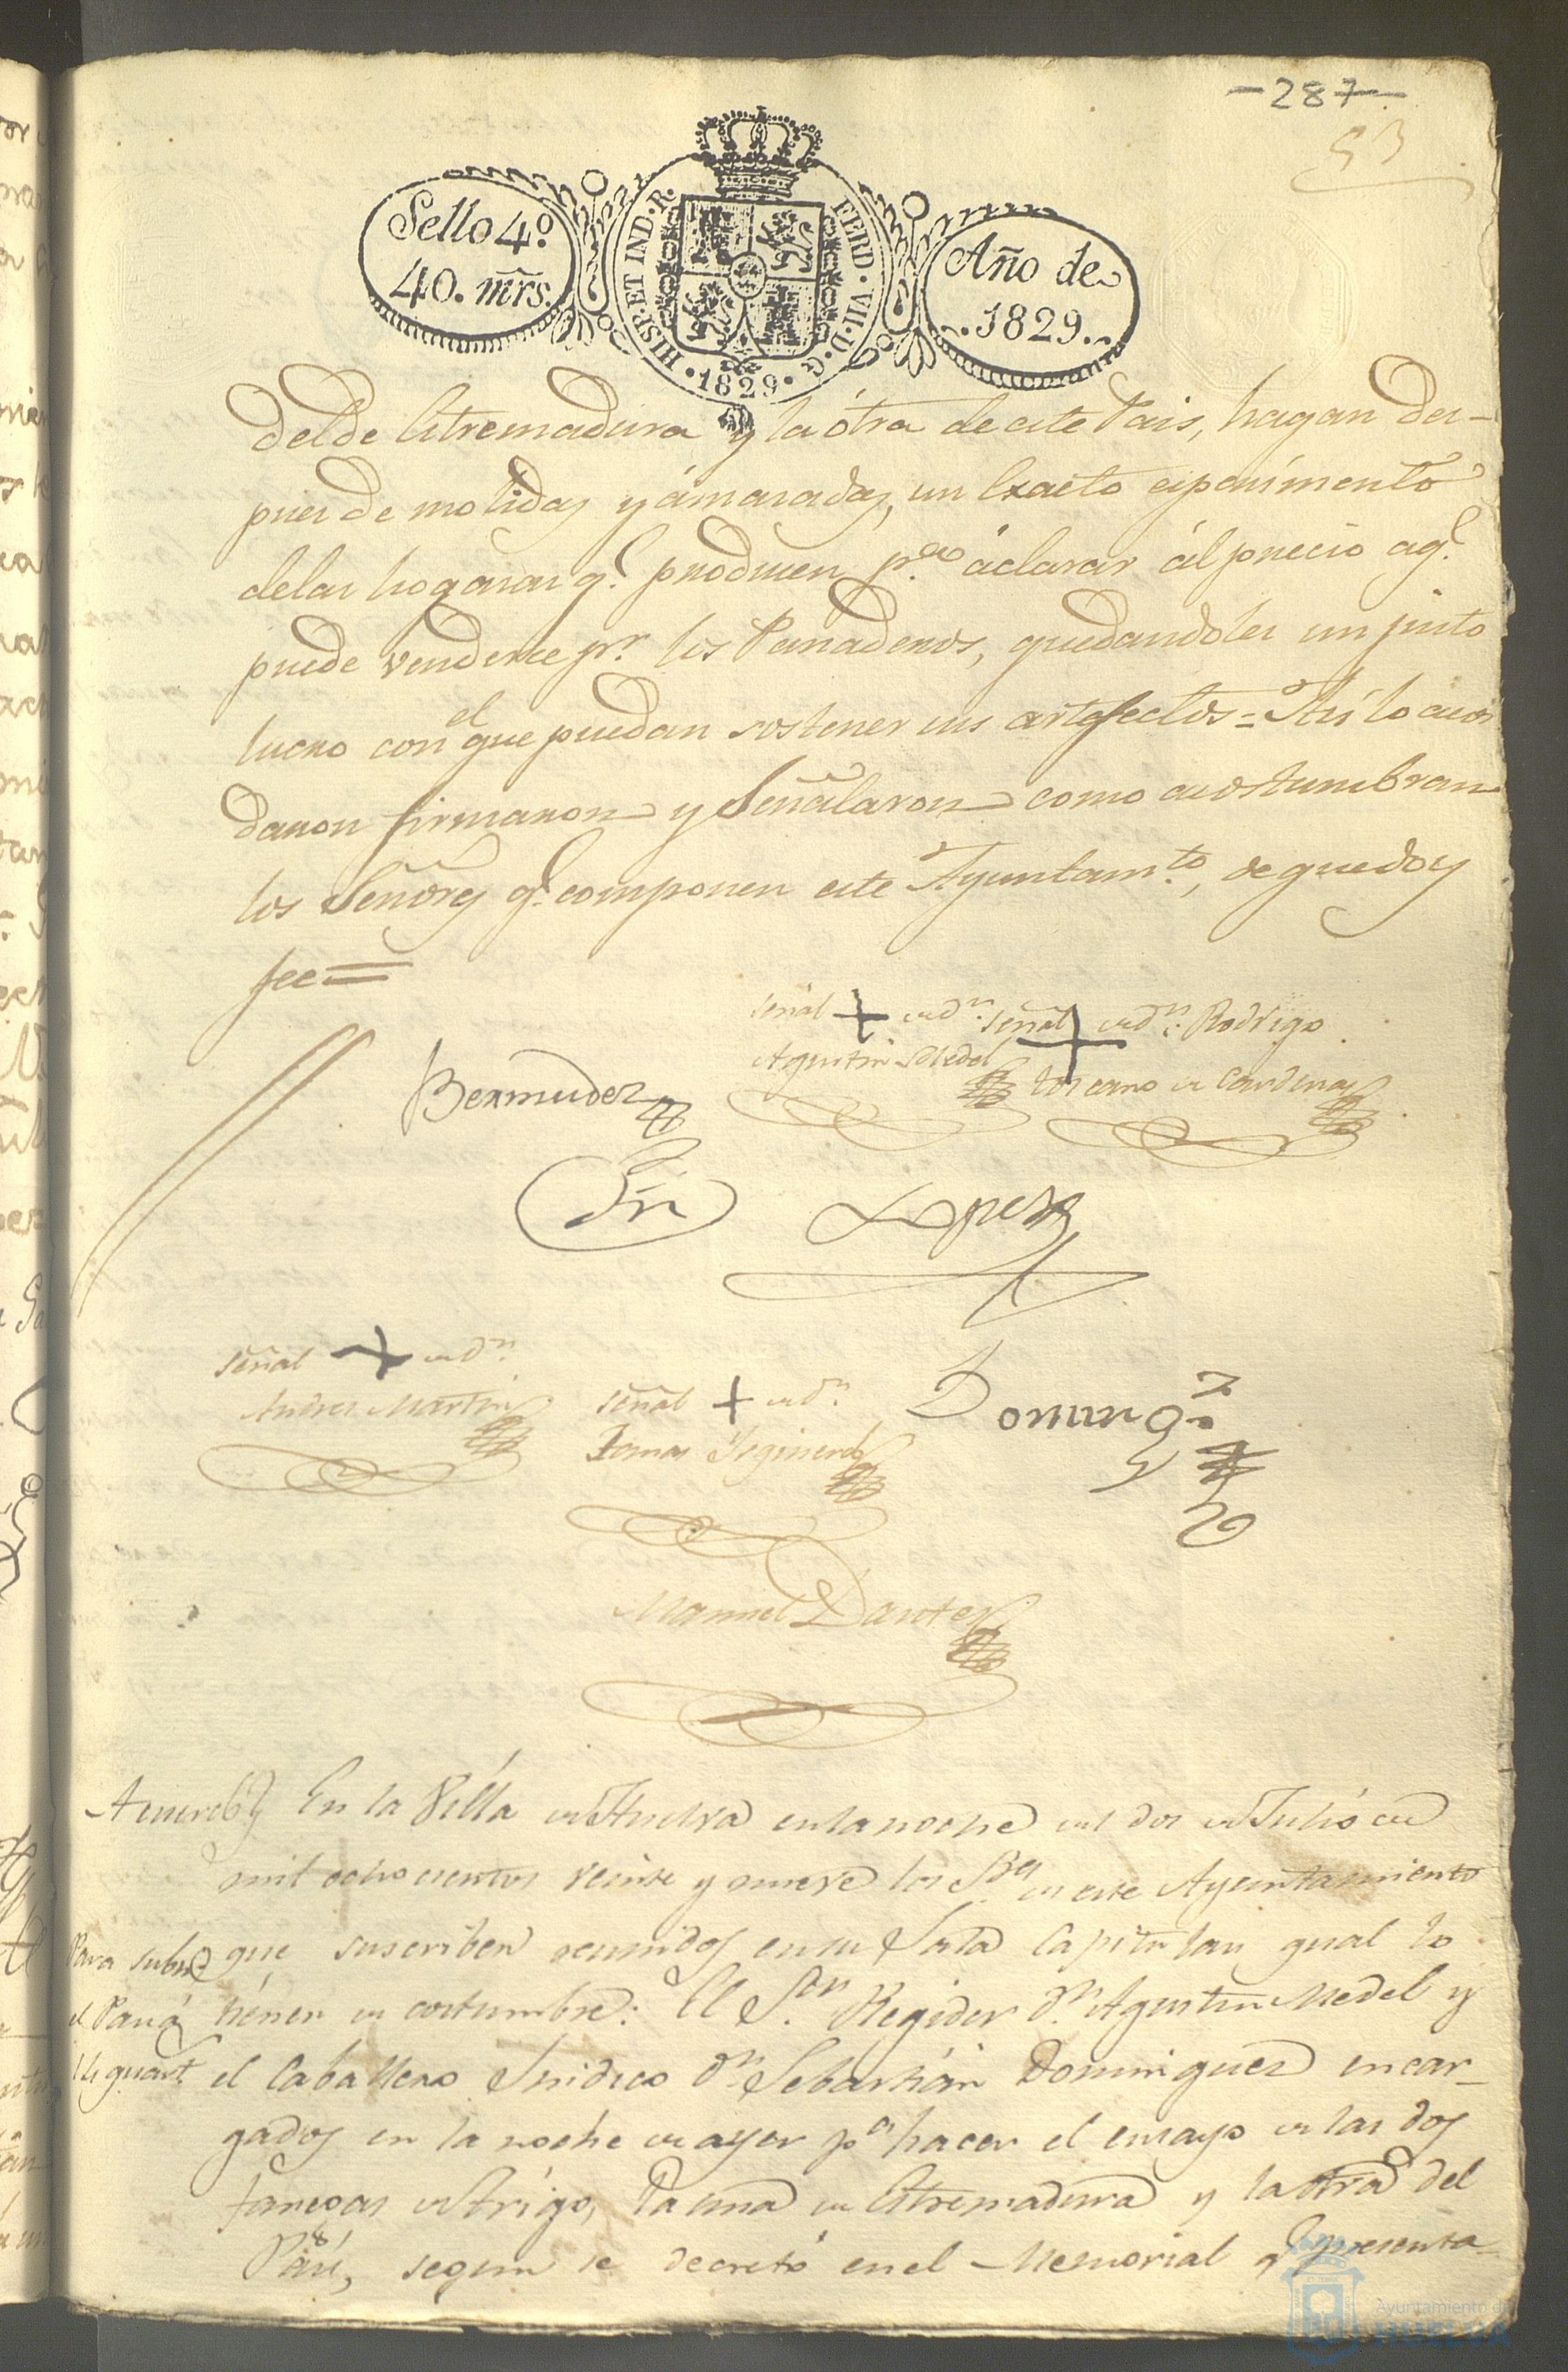 -287-
53
Sello 4º
40. mrs.
HISP. ET IND. R.
FERD. VII. D. G.
1829
Año de
1829
del de Estremadura y la ótra de este Pais, hagan des-
pues de molidas y ámasadas, un Exacto esperimento
de las hogasas q.e producen p.a áclarar ál precio aq.e
puede venderse p.r los Panaderos, quedandoles un justo
lucro con el que puedan sostener sus artefactos = Así lo acor
daron firmaron y Señalaron como acostumbran
los Señores q.e componen este Ayuntam.to, de que doy
fee =
Señal + de D.n
Agustin Medel
Señal + de D.n Rodrigo
Toscano de Cardenas
Bermudez
Lopez
Señal + de D.n
Andres Martin
Señal + de D.n
Tomas
Doming.z
Manuel Dantes
Acuerdo En la Villa de Huelva en la noche del dos de Julio de
mil ochocientos veinte y nueve los S.res de este Ayuntamiento
Para subir
que suscriben reunidos en su Sala Capitular qual lo
el Pan á
tienen de costumbre: El S.or Regidor D.n Agustin Medel y
quart.
el Caballero Sindico D.n Sebastián Dominguez encar-
gados en la noche de ayer p.a hacer el ensayo de las dos
fanegas de trigo, la una de Estremadura y la otra del
Pais, segun se decretó en el Memorial q.e presenta-
Ayuntamiento de
HUELVA